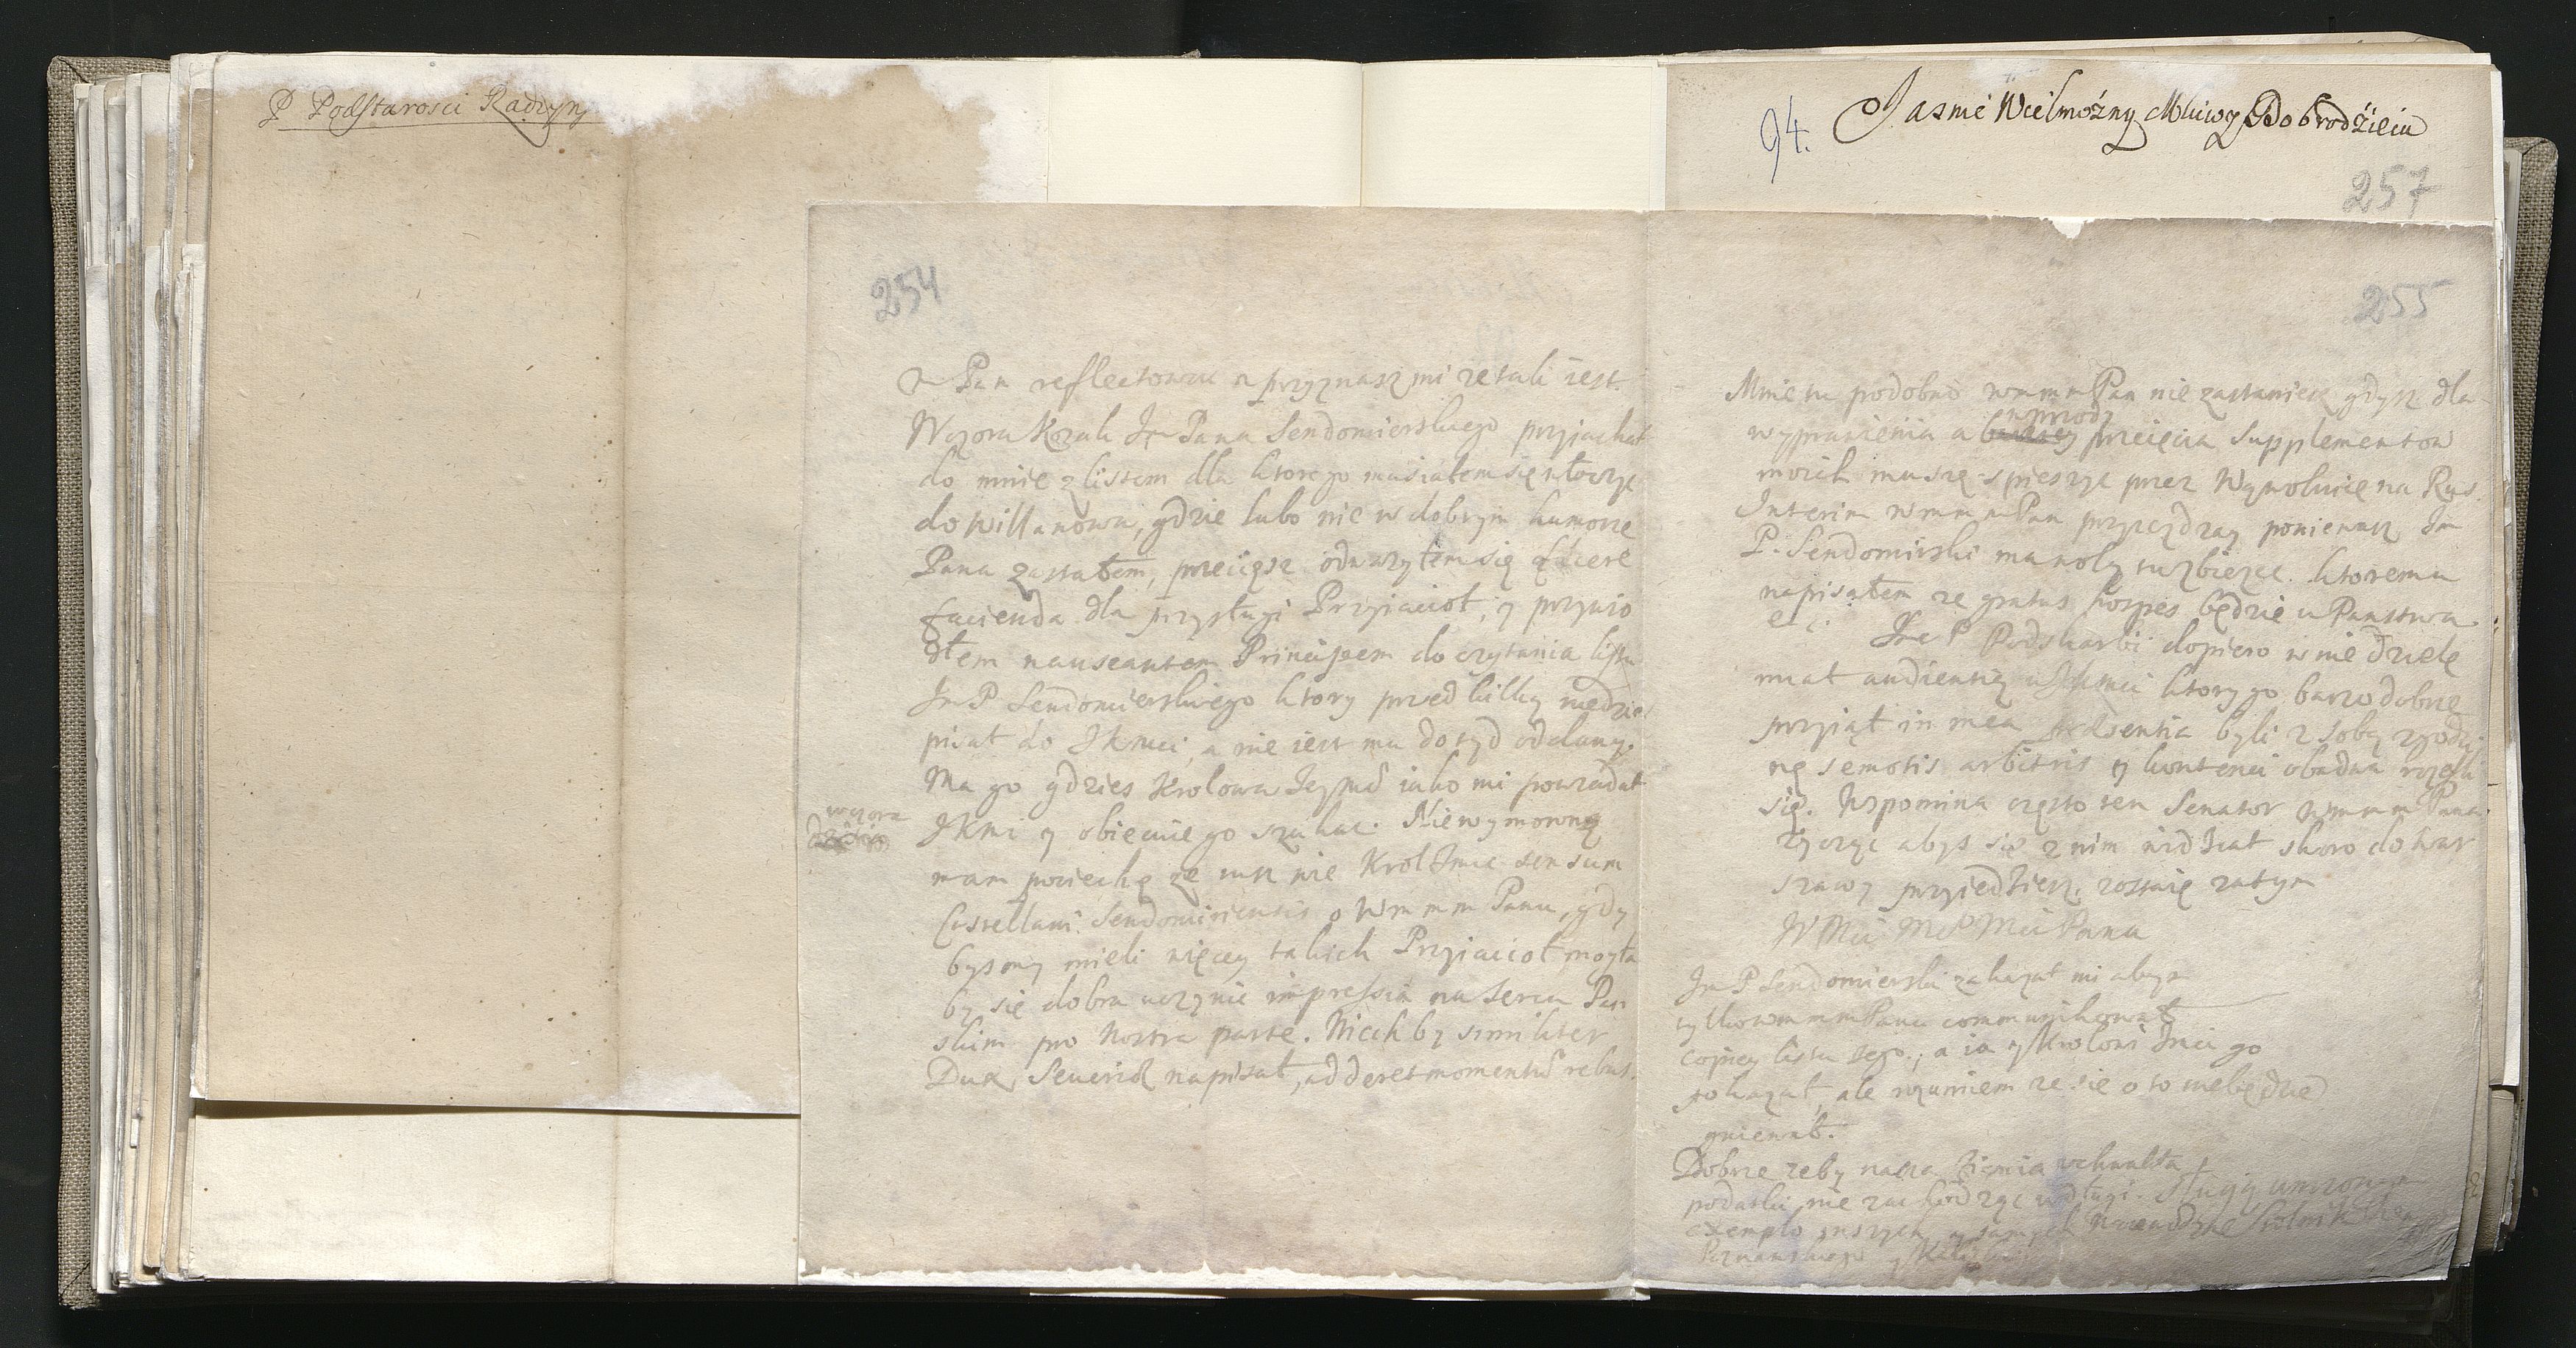 P Podstarosci Radzyn
94. Jasnie Wielmożny Mciwy Dobrodzieiu
257
254
m Pan reflectowac a przyznasz mi ze tak iest.
Wczora Kozak Jm Pana Sendomierskiego przyiachał
do mnie z listem dla ktorego musiałem się włoczyc
do Willanowa, gdzie lubo nie w dobrym humorze
Pana zastałem, przeciesz odwazyłem się facere
facienda dla przysługi Przyiacioł, y przywio
dłem nauseantem Principem do czytania listu
Jm P Sendomierskiego ktory przed kilką niedziel
pisał do JKmci, a nie iest mu dotyd oddany.
Ma go gdzies Krolowa Jeymć iako mi powiadał
wczora
JKmc y obiecuie go szukac. Niewymowną
mam pociechę ze wsz nie Krol Jmc sensum
Castellani Sendomiriensis o Wm m m Panu, gdy
bysmy mieli więcey takich Przyiacioł mogła
by się dobra uczynic impressia na sercu Pan
skim pro nostra parte. Niech by similiter
Dux Severiæ napisał, adderet momentū rebus.
255
Mnie tu podobno wm m m Pan nie zastaniesz gdysz dla
wprzody
wyprawienia a przecięcia Supplementow
moich muszę spieszyc przez Wąwolnicę na Rus.
Interim wm m m Pan przyiezdzay poniewasz Jm
P. Sendomirski ma wolą tu zbiezec. ktoremu
napisałem ze gratus hospes będzie u Panstwa
etc. Jmc P Podskarbi dopiero w niedzielę
miał audientią u JKmci ktory go barzo dobrze
przyiął in mea præsentia byli z sobą z godzi
nę semotis arbitris y kontenci obadwa rozeszli
się. Wspomina często ten Senator wm m m Pana
zycząc abys się z nim widział skoro do War
szawy przyiedziesz, zostaię zatym
W Mci MP Mci Pana
Jm P Sendomierski zakazał mi abym
tylko wm m m Panu communikował
copiey listu tego, a ia y Krolowi Jmci go
pokazał, ale rozumiem ze się o to nie będzie
gniewał.
Dobrze zeby nasza ziemia uchwaliła
podatki nie zachodząc w długi. Sługą
exemplo inszych y samych Woiewodztw
Poznanskiego y Kaliskiego